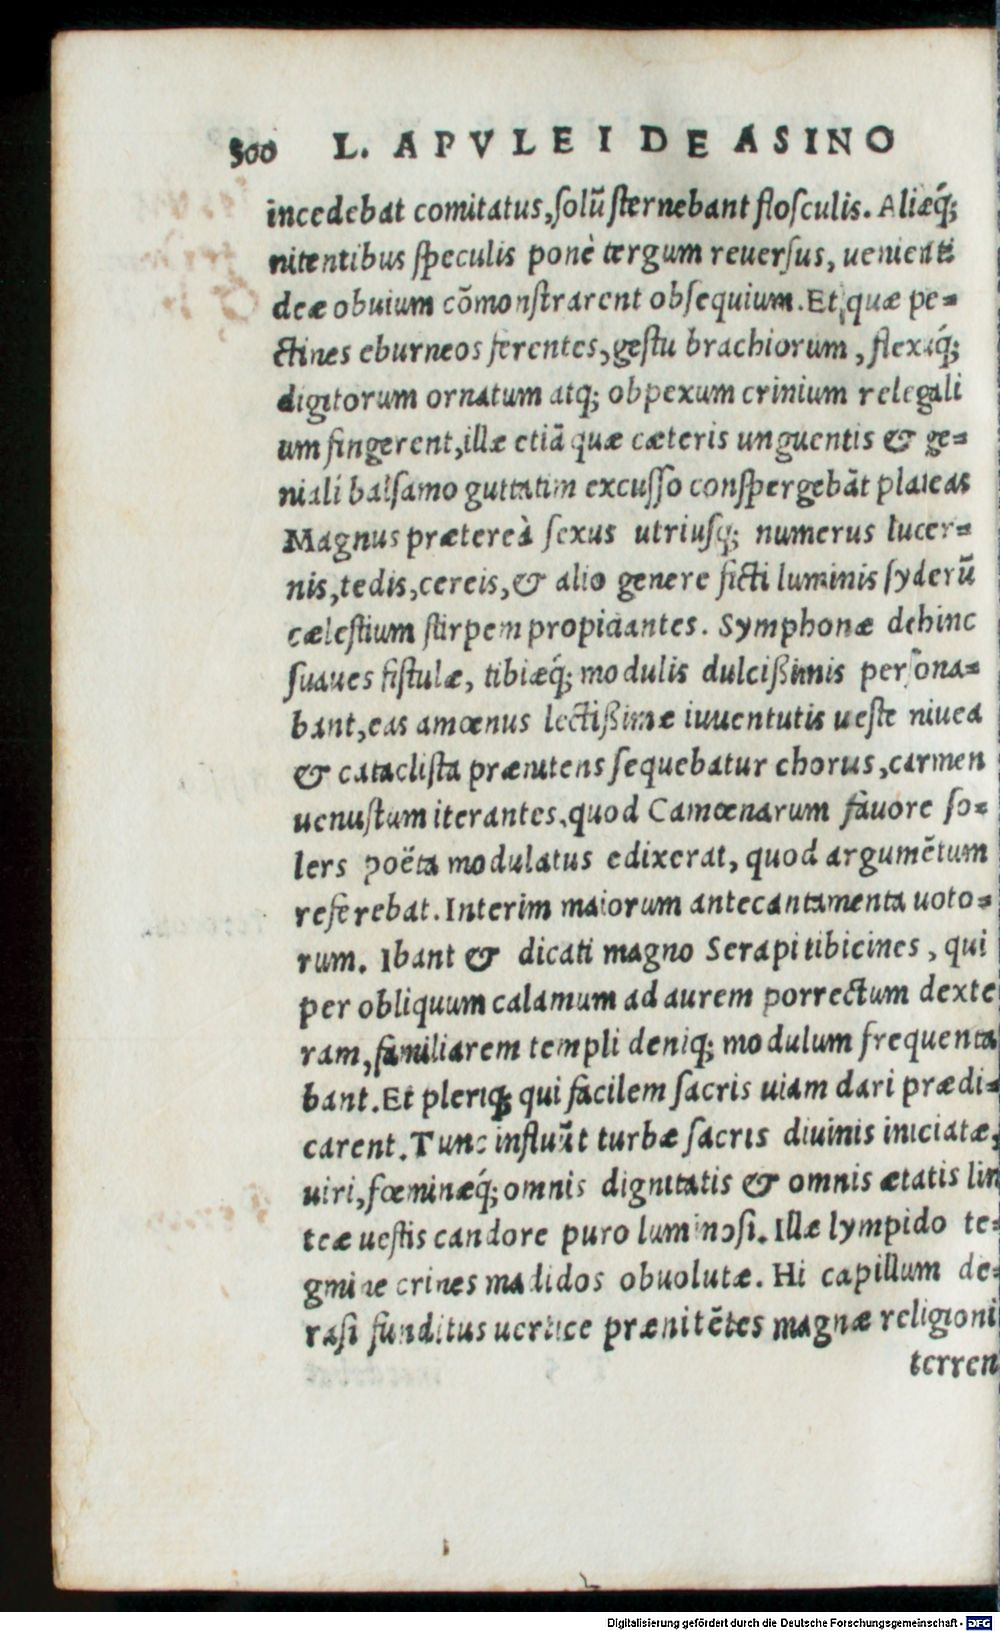 300 L. APVLEI DE ASINO
incedebat comitatus, ſolũ ſternebant floſculis. Aliæq́;
nitentibus ſpeculis ponè tergum reuerſus, uenienti
deæ obuium cõmonſtrarent obſequium. Et quæ pe=
ctines eburneos ferentes, geſtu brachiorum, flexuq́;
digitorum ornatum atq; obpexum crinium relegali
um fingerent, illæ etiã quæ cæteris unguentis & ge=
niali balſamo guttatim excuſſo conſpergebãt plateas
Magnus prætereà ſexus utriuſq; numerus lucer=
nis, tedis, cereis, & alio genere ficti luminis ſyderũ
cæleſtium ſtirpem propiciantes. Symphonæ dehinc
ſuaues fiſtulæ, tibiæq́; modulis dulcißimis perſona=
bant, eas amœnus lectißimæ iuuentutis ueſte niuea
& catacliſta prænitens ſequebatur chorus, carmen
uenuſtum iterantes, quod Camœnarum fauore ſo=
lers poëta modulatus edixerat, quod argumẽtum
referebat. Interim maiorum antecantamenta uoto=
rum. Ibant & dicati magno Serapi tibicines, qui
per obliquum calamum ad aurem porrectum dexte
ram, familiarem templi deniq; modulum frequenta
bant. Et pleriq; qui facilem ſacris uiam dari prædi=
carent. Tunc influũt turbæ ſacris diuinis iniciatæ,
uiri, fœminæq́; omnis dignitatis & omnis ætatis lin
teæ ueſtis candore puro luminoſi. Illæ lympido te=
gmine crines madidos obuolutæ. Hi capillum de=
raſi funditus uertice prænitẽtes magnæ religioni
terren
Digitalisierung gefördert durch die Deutsche Forschungsgemeinschaft - DFG